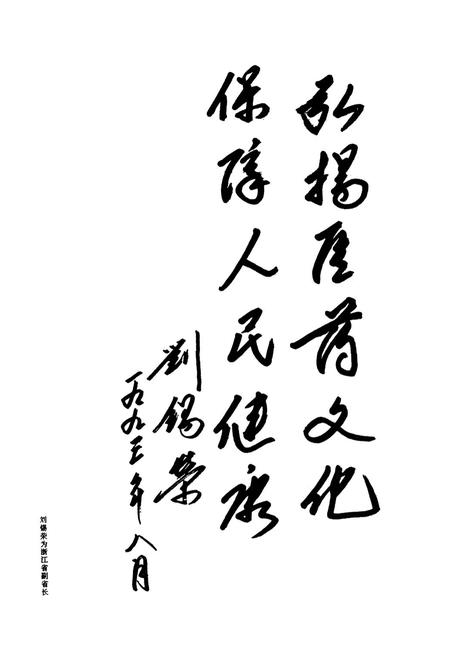 弘扬医药文化
保障人民健康
劉锡榮
一九九三年八月
刘锡荣为浙江省副省长